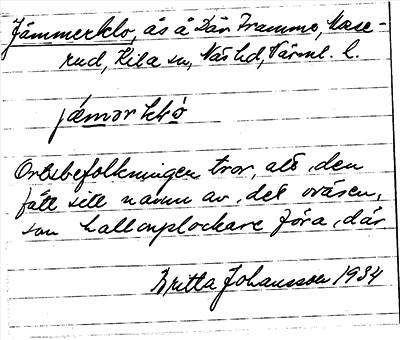 Jämmerklo, ås å Där Framme, Nase-
rud, Kila sn, Näs hd, Värml. l.
jämərkló
Ortsbefolkningen tror, att den
fått sitt namn av det oväsen,
som hallonplockare föra där
Britta Johansson 1934